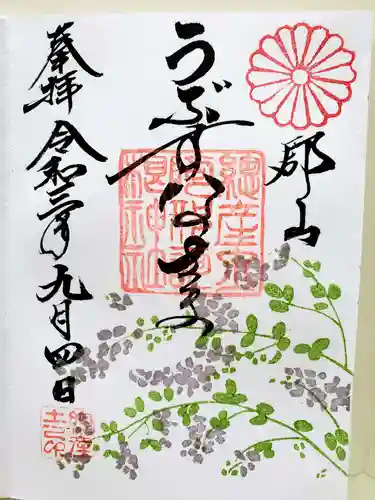 郡山
うぶすな
總産土
阿邪訶
根神社
奉拝 令和三年九月四日